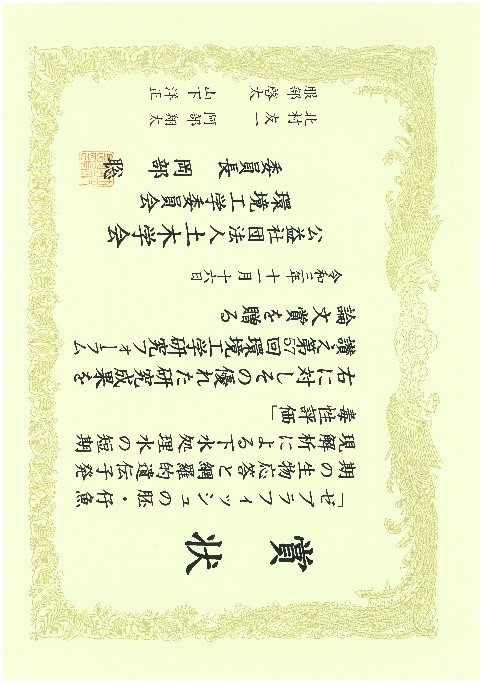 賞状
「ゼブラフィッシュの胚・仔魚
期の生物応答と網羅的遺伝子発
現解析による下水処理水の短期
毒性評価」
右に対しその優れた研究成果を
讃え第57回環境工学研究フォーラム
論文賞を贈る
令和三年 十一月 十六日
公益社団法人土木学会
環境工学委員会
委員長 岡部 聡
北村 友一 阿部 翔太
服部 啓太 山下 洋正